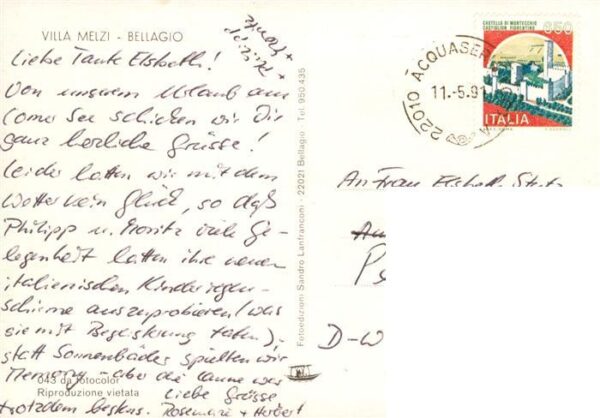 VILLA MELZI - BELLAGIO
Liebe Tante Elsbeth!
Von unserem Urlaub am
Comer See schicken wir Dir
ganz herzliche Grüsse!
Leider hatten wir mit dem
Wetter kein Glück, so daß
Philipp u. Moritz viele Ge-
legenheit hatten ihre neuen
italienischen Kinderregen-
schirme auszuprobieren (was
sie mit Begeisterung taten).
statt Sonnenbades spielten wir
Memory - aber die Laune war
trotzdem bestens.
Liebe Grüsse
Rosemarie + Herbert
+ Philipp
+ Moritz
043 da fotocolor
Riproduzione vietata
Fotoedizioni Sandro Lanfranconi - 22021 Bellagio Tel. 950.435
CASTELLO DI MONTECCHIO
CASTIGLION FIORENTINO
650
ITALIA
22010 ACQUASER
11.-5.91
An Frau Elsbeth
D-W